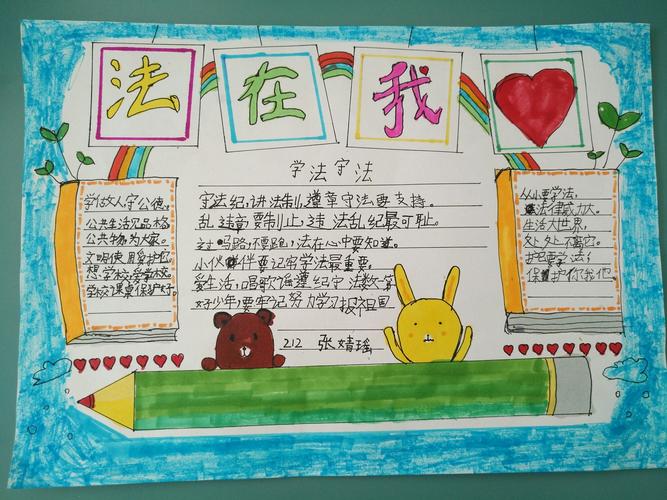 法 在 我
学法守法
学做人守公德。
公共生活见品格
公共物为大家。
文明使用爱护它
想学校爱学校。
学校课桌保护好。
守法纪,讲法制,遵章守法要支持。
乱违章要制止,违法乱纪最可耻。
过马路,不要跑,法在心中要知道。
小伙伴要记牢学法最重要。
爱生活,唱歌谣遵纪守法数第
好少年,要牢记努力学习报祖国
212 张婧瑶
从小要学法,
法律威力大。
生活大世界,
处处不离它。
护己要学法,
保护你我他。